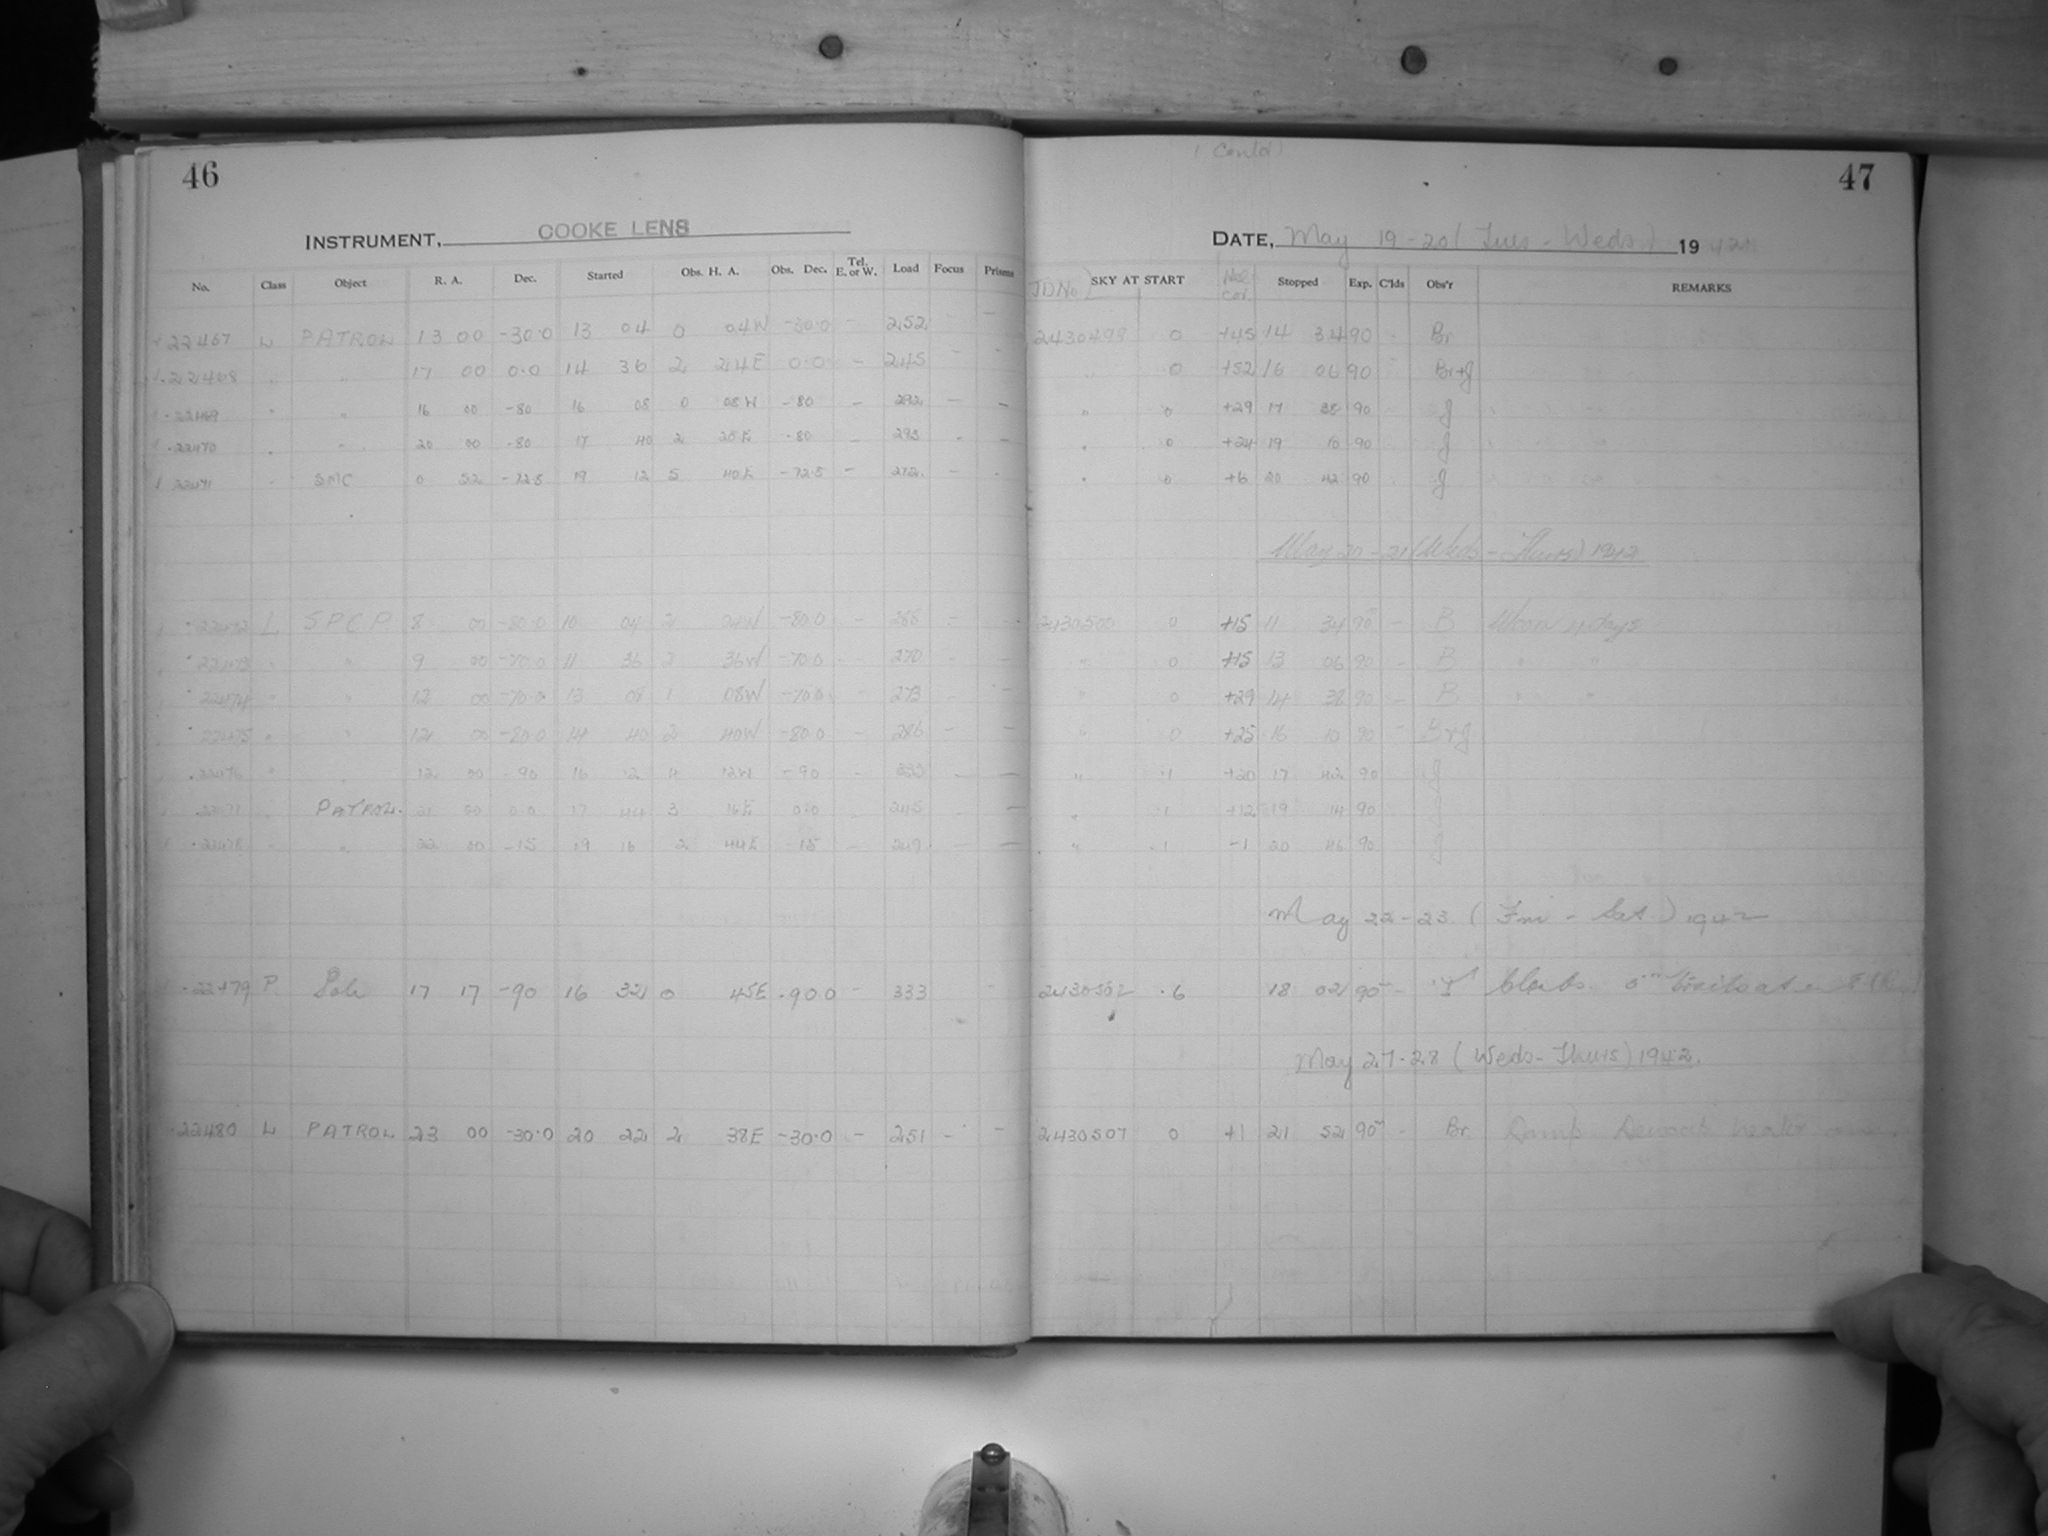 46
INSTRUMENT, COOKE LENS
No. Class Object R. A. Dec. Started Obs. H. A. Obs. Dec. Tel. E. or W. Load Focus Prisms
22467 L PATROL 13 00 -30.0 13 04 0 04W -30.0 - 252 - -
22468 " " 17 00 0.0 14 36 2 24E 0.0 - 245 - -
22469 " " 16 00 -80 16 08 0 08W -80 - 292 - -
22470 " " 20 00 -80 17 40 2 20E -80 - 293 - -
22471 " SMC 0 52 -72.5 19 12 5 40E -72.5 - 272 - -
22472 L S.P.C.P. 8 00 -80.0 10 04 2 04W -80.0 - 288 - -
22473 " " 9 00 -70.0 11 36 2 36W -70.0 - 270 - -
22474 " " 12 00 -70.0 13 08 1 08W -70.0 - 273 - -
22475 " " 12 00 -80.0 14 40 2 40W -80.0 - 286 - -
22476 " " 12 00 -90 16 12 4 12W -90 - 333 - -
22477 " PATROL. 21 00 0.0 17 44 3 16E 0.0 - 245 -
22478 " " 22 00 -15 19 16 2 44E -15 - 249 - -
22479 P Pole 17 17 -90 16 32 0 45E -90.0 - 333 -
22480 L PATROL 23 00 -30.0 20 22 2 38E -30.0 - 251 - -
(Contd)
47
DATE, May 19-20 (Tues - Weds) 1942
JD No. SKY AT START Stopped Exp. C'lds Obs'r REMARKS
2430499 0 +45 14 34 90 - Br
" 0 +52 16 06 90 Br+J
" 0 +29 17 38 90 J
" 0 +24 19 10 90 J
" 0 +6 20 42 90 J
May 20-21 (Weds - Thurs) 1942
2430500 0 +15 11 34 90 - B Moon 4 days
" 0 +15 13 06 90 - B " "
" 0 +29 14 38 90 - B " "
" 0 +25 16 10 90 - BrJ
" .1 +20 17 42 90 J
" .1 +12 19 14 90 J
" .1 -1 20 46 90 J
May 22-23 (Fri - Sat) 1942
2430502 .6 18 02 90 - J Clouds
May 27-28 (Weds - Thurs) 1942.
2430507 0 +1 21 52 90 - Br Damp Dewcap heater